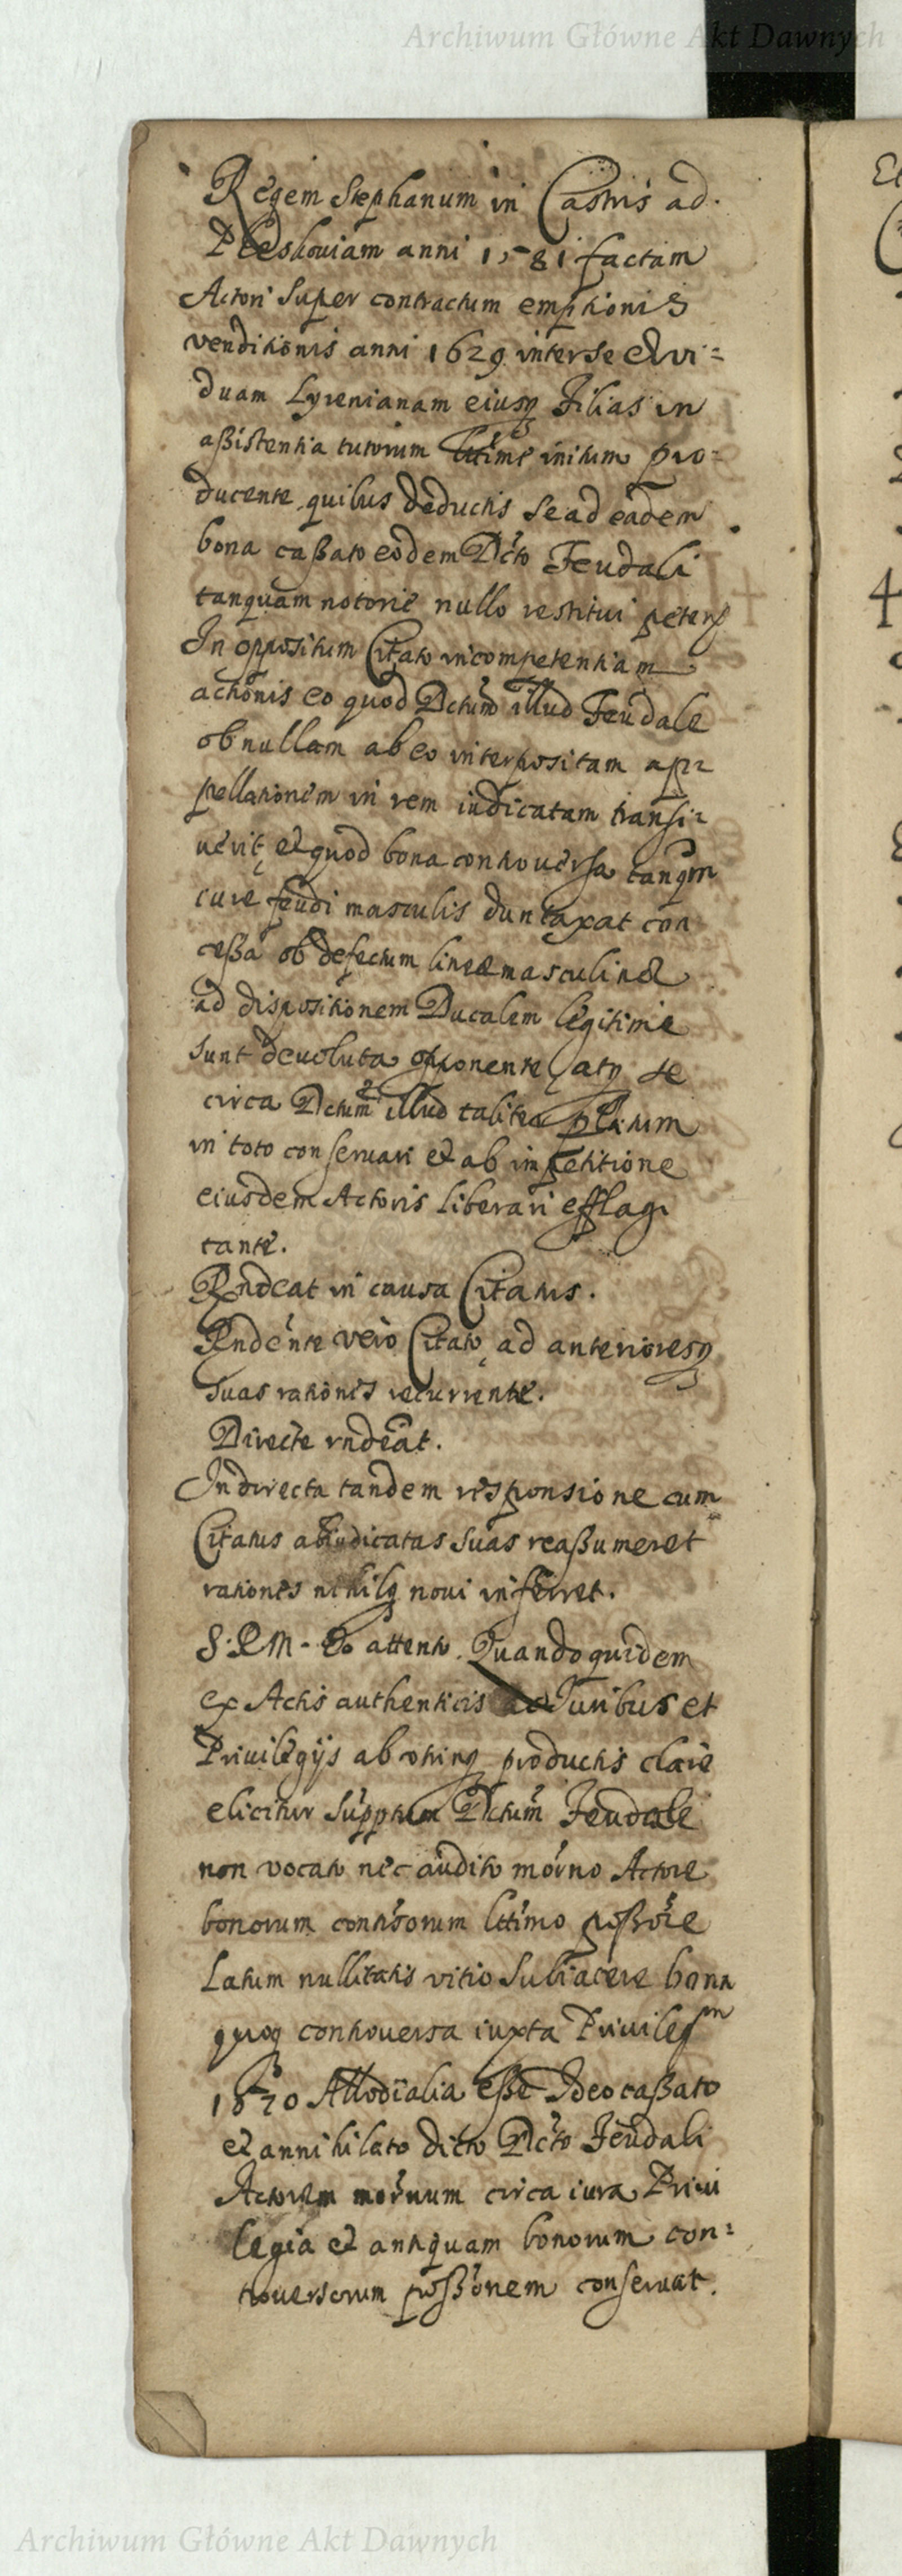 Archiwum Główne Akt Dawnych
Regem Stephanum in Castris ad
Pleskoviam anni 1581 factam
Actori super contractum emptionis
venditionis anni 1629 inter se et vi=
duam Lyrenianam eiusq Filias in
aßistentia tutorum lttime initum pro=
ducente, quibus deductis se ad eadem
bona caßato eodem Dcto Feudali
tanquam notorie nullo restitui petens
In oppositum Citato incompetentiam
actionis eo quod Dctum illud Feudale
ob nullam ab eo interpositam ap=
pellationem in rem iudicatam transi=
uerit, et quod bona controuersa tanqm
iure feudi masculis duntaxat con
ceßa ob defectum lineæ masculinæ
ad dispositionem Ducalem legitime
sunt deuoluta opponente, atq se
circa Dctum illud taliter platum
in toto conseruari et ab impetitione
eiusdem Actoris liberari efflagi
tante.
Rndeat in causa Citatus.
Rndente vero Citato, ad anterioresq
suas rationes recurrente.
Directe rndeat.
In directa tandem responsione cum
Citatus abiudicatas suas reaßumeret
rationes nihilq noui inferret.
S. R. M. Eo attento. Quandoquidem
ex Actis authenticis ac Iuribus et
Priuilegijs ab utrinq productis clare
elicitur supptum Dctum Feudale
non vocato nec audito morno Actore
bonorum contisorum lttimo poßore
Latum nullitatis vitio subiacere bona
quoq controuersa iuxta Priuilegm
Allodialia eße Ideo caßato
et annihilato dicto Dcto Feudali
Actorem mornum circa iura Priui
legia et antiquam bonorum con=
trouersorum poßonem conseruat.
4
Archiwum Główne Akt Dawnych